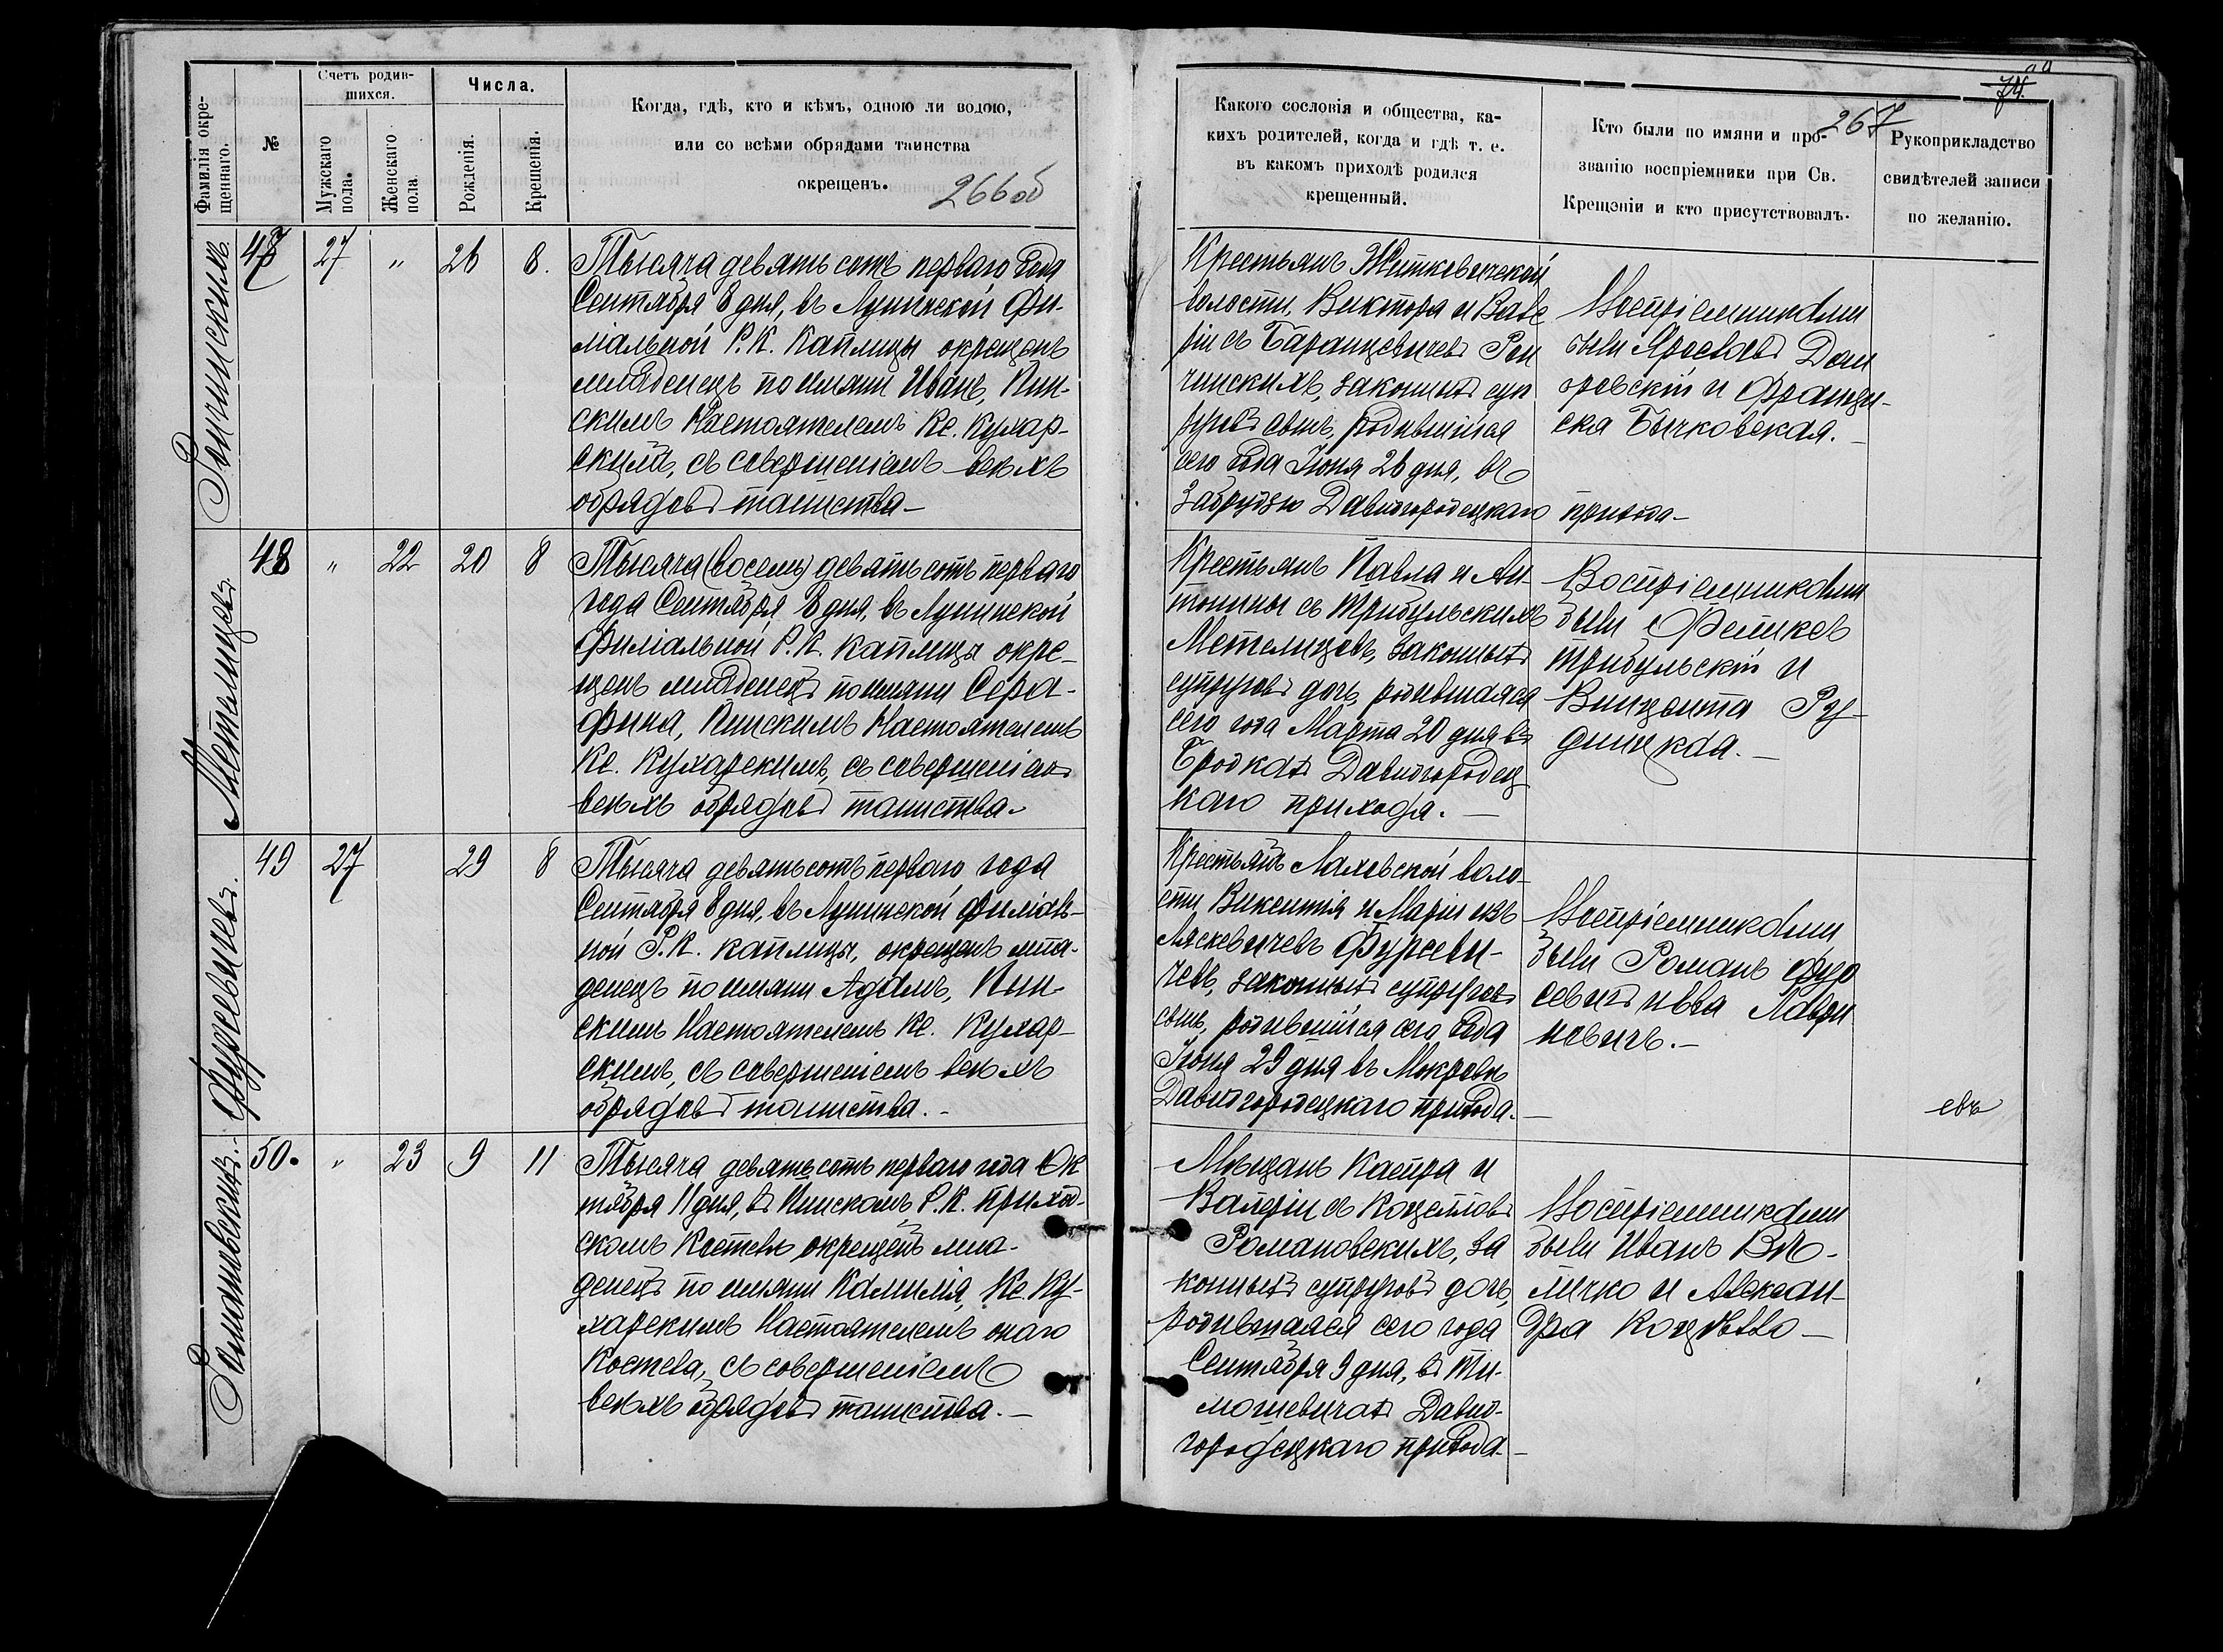 Фамилія окре-
щеннаго.
№
Счетъ родив-
шихся.
Мужскаго
пола.
Женскаго
пола.
Числа.
Рожденія.
Крещенія.
Когда, гдѣ, кто и кѣмъ, одною ли водою,
или со всѣми обрядами таинства
окрещенъ.
266 об
47 27 " 26 8.
Тысяча девять сотъ перваго года
Сентября 8 дня, въ Лунинской Фи-
ліальной Р.К. Каплицы окрещенъ
младенецъ по имяни Иванъ, Пин-
скимъ Настоятелемъ Кс. Кухар-
скимъ, съ совершеніемъ всѣхъ
обрядовъ таинства –
Метелицевъ
48 " 22 20 8
Тысяча (восемь) девять сотъ перваго
года Сентября 8 дня, въ Лунинской
Филіальной Р.К. Каплицы окре-
щенъ младенецъ по имяни Сера-
фина, Пинскимъ Настоятелемъ
Кс. Кухарскимъ, съ совершеніемъ
всѣхъ обрядовъ таинства.
Фурсевичевъ.
49 27 29 8
Тысяча девять сотъ перваго года
Сентября 8 дня, въ Лунинской филіаль-
ной Р.К. Каплицы, окрещенъ мла-
денецъ по имяни Адамъ, Пин-
скимъ Настоятелемъ Кс. Кухар-
скимъ, съ совершеніемъ всѣхъ
обрядовъ таинства. –
Романовскихъ.
50. " 23 9 11
Тысяча девять сотъ перваго года Ок
тября 11 дня, въ Пинскомъ Р.К. приход-
скомъ Костелѣ окрещенъ мла-
денецъ по имяни Камилія, Кс. Ку-
харскимъ Настоятелемъ онаго
Костела, съ совершеніемъ
всѣхъ обрядовъ таинства. –
74.
267
Какого сословія и общества, ка-
кихъ родителей, когда и гдѣ т. е.
въ какомъ приходѣ родился
крещенный.
Кто были по имяни и про-
званію воспріемники при Св.
Крещеніи и кто присутствовалъ.
Рукоприкладство
свидѣтелей записи
по желанію.
Крестьянъ Житковичской
волости, Виктора и Вале
ріи съ Баранцевичевъ
законныхъ суп
руговъ сынъ, родившійся
сего года Іюня 26 дня, въ
Давидгородецкаго прихода –
Воспріемниками
были Ярославъ Дом
бровскій и Франци-
ска Бычковская. –
Крестьянъ Павла и Ан-
тонины съ Трибульскихъ
Метелицевъ, законныхъ
супруговъ дочь, родившаяся
сего года Марта 20 дня въ
Бродкахъ Давидгородец
каго прихода. –
Воспріемниками
были Феликсъ
Трибульскій и
Винцента Ру-
дницкая. –
Крестьянъ Лаховской воло-
сти Викентія и Маріи изъ
Ляскевичевъ Фурсеви-
чевъ, законныхъ супруговъ
сынъ, родившійся сего года
Іюня 29 дня въ Мокровѣ
Давидгородецкаго прихода. –
Воспріемниками
были Романъ Фур
севичъ и Ева Лаври
новичъ. –
евъ
Мѣщанъ Каспра и
Валеріи съ Коцелловъ
Романовскихъ, за
конныхъ супруговъ дочь,
родившаяся сего года
Сентября 9 дня, въ Ти-
мошевичахъ Давид-
городецкаго прихода –
Воспріемниками
были Иванъ Вѣ-
личко и Алексан-
дра Коцелло –